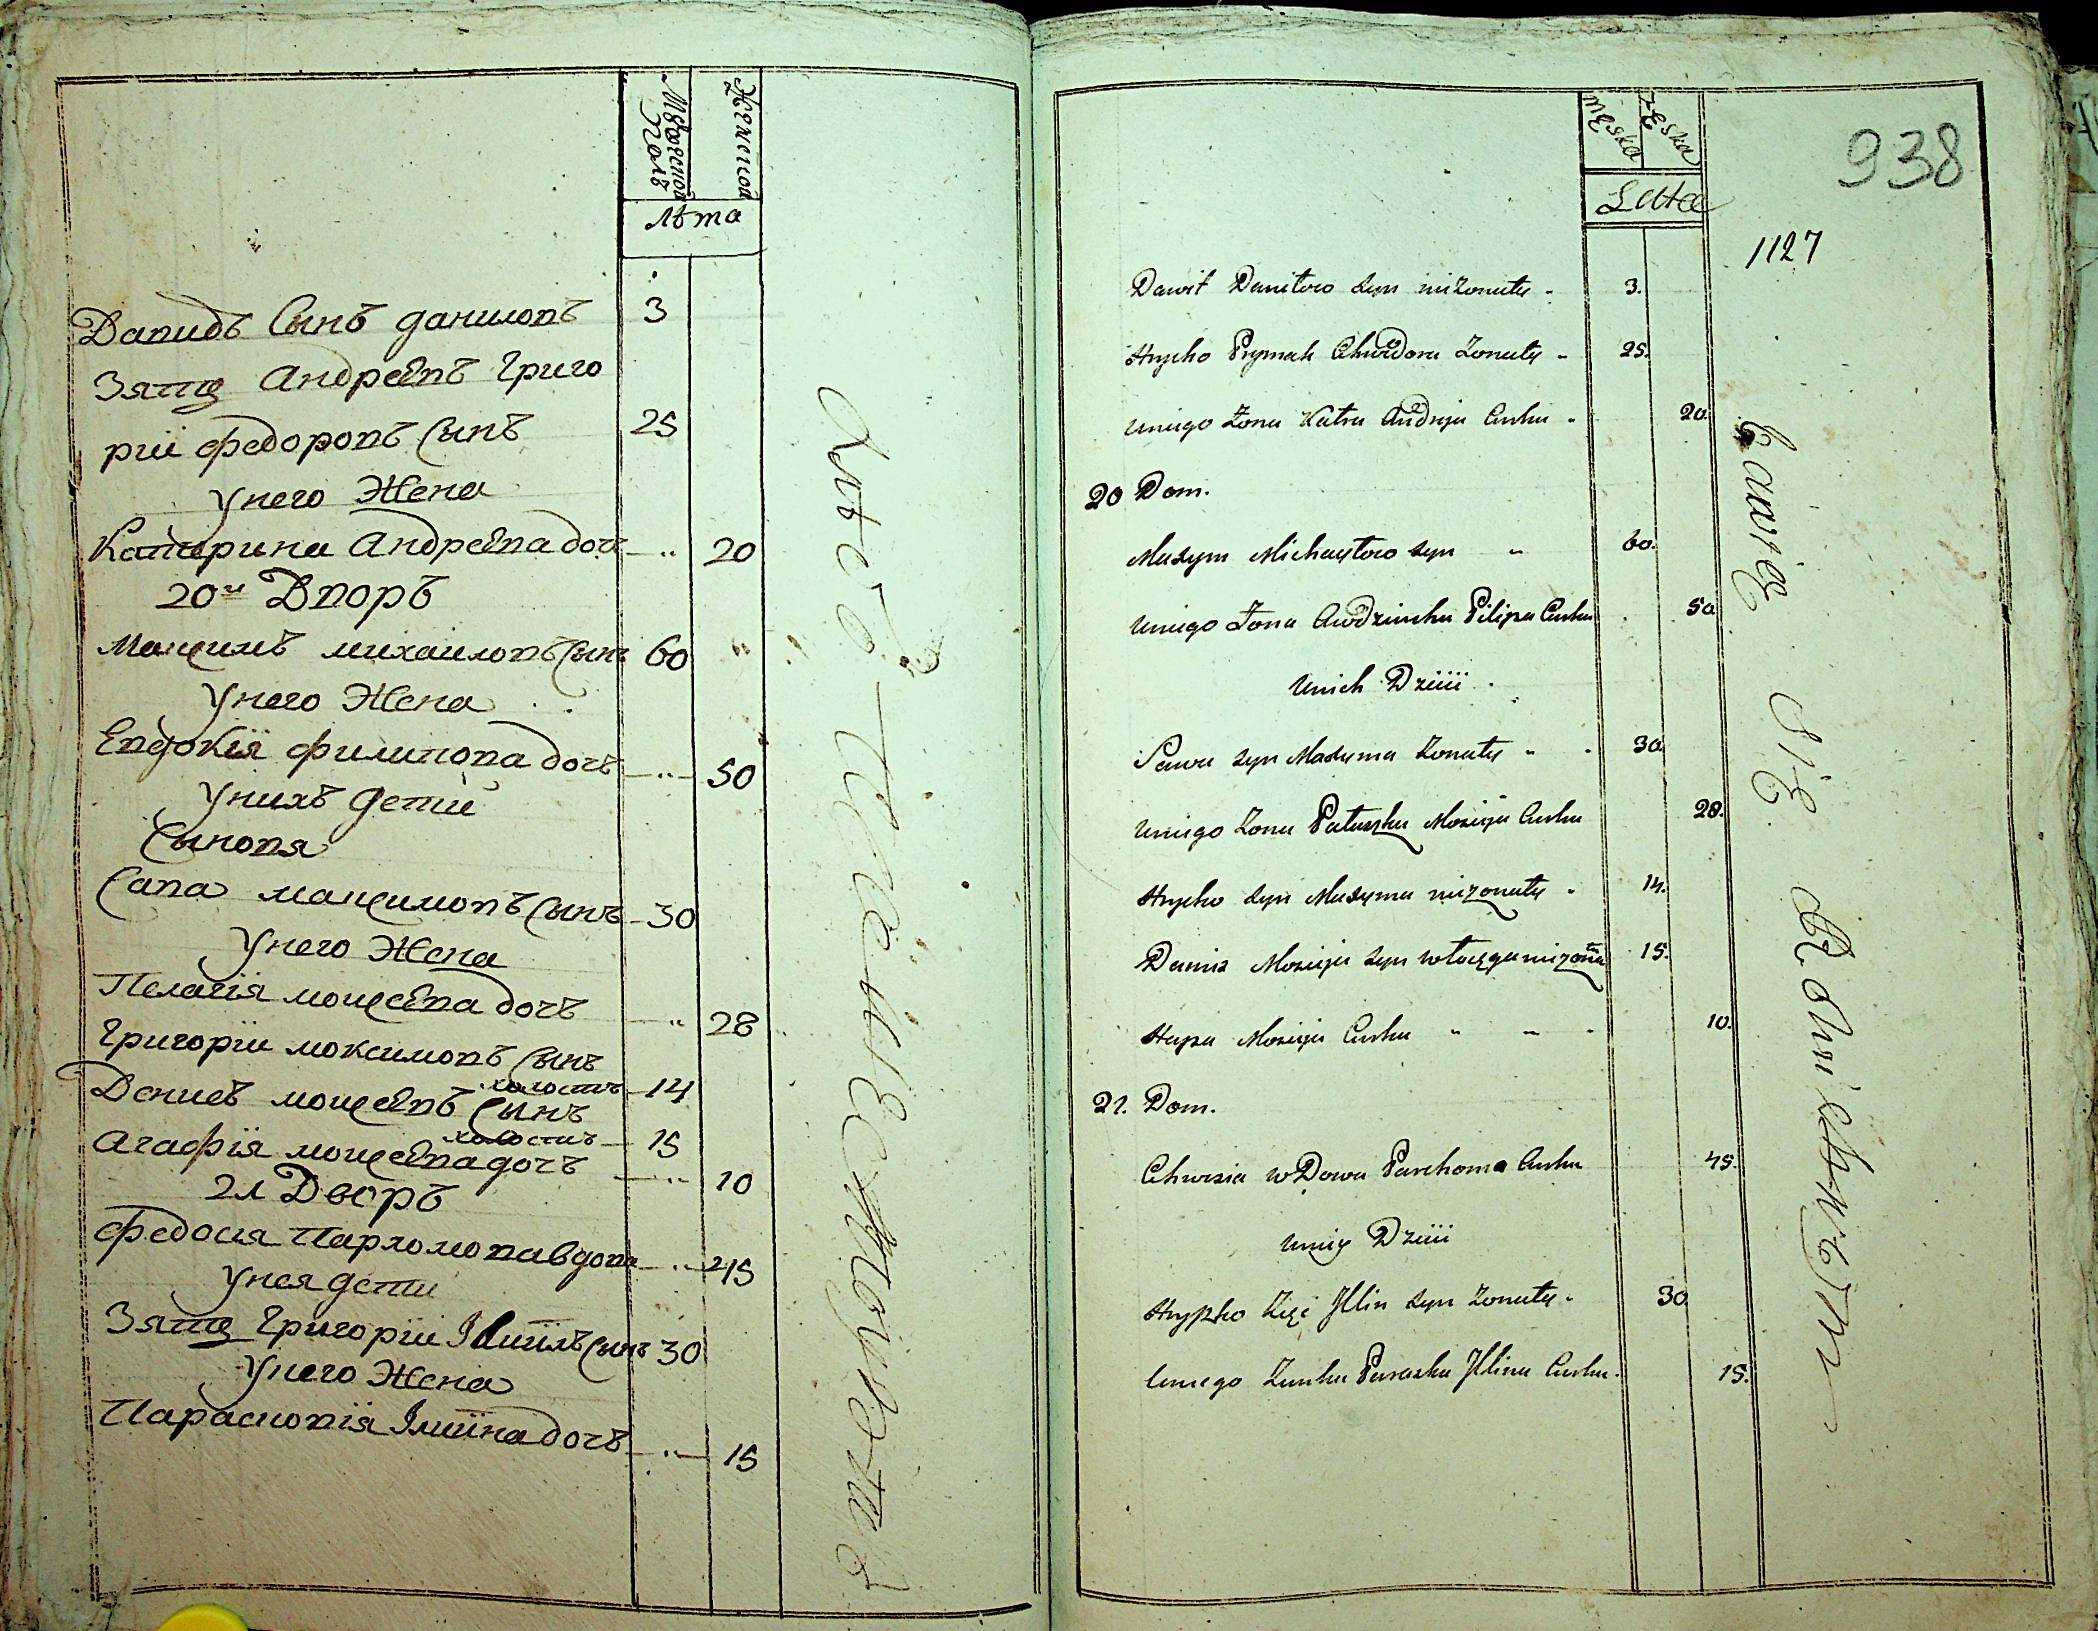 Мужеской Полъ
Женской
Лѣта
Давидъ Сынъ даниловъ 3
Зять Андреевъ Григо
рій федоровъ Сынъ 25
Унего Жена
Катерина Андреева дочь 20
20й Дворъ
Максимъ михаиловъ Сынъ 60
Унего Жена
Евдокія филипова дочъ 50
Унихъ дети
Сыновя
Сава максимовъ Сынъ 30
Унего Жена
Пелагія мосеева дочъ 28
Григоріи максимовъ Сынъ
холостъ 14
Денисъ мосеевъ Сынъ
холостъ 15
Агафія мосеева дочъ 10
21 Дворъ
Федосия Пархомова вдова 45
Унея дети
Зять Григоріи Ілиинъ Сынъ 30
Унего Жена
Парасковія Ілиина дочъ 15
Męska
Żęska
Lata
938
1127
Dawid Daniłow syn niżonaty 3.
Hrycko Prymak Chwedora Żonaty 25.
Uniego Żona Katra Andreja Curka 20.
20 Dom.
Maxym Michayłow syn 60.
Uniego Żona Awdziuchu Pilipa Curka 50
Unich Dziiii
Sawa syn Maxyma Żonaty 30.
Uniego Żona Pałaszka Mosieja Curka 28.
Hrycko syn Maxyma niżonaty 14.
Danis Mosieja syn włuczęga niżona 15.
Hapa Mosieja Curka 10.
21. Dom.
Chwesia wDowa Parchoma Curka 45.
Uniey Dziiii
Hrycko Zięć Illin syn Żonaty 30
Uniego Żunka Paraska Illina Curka. 15.